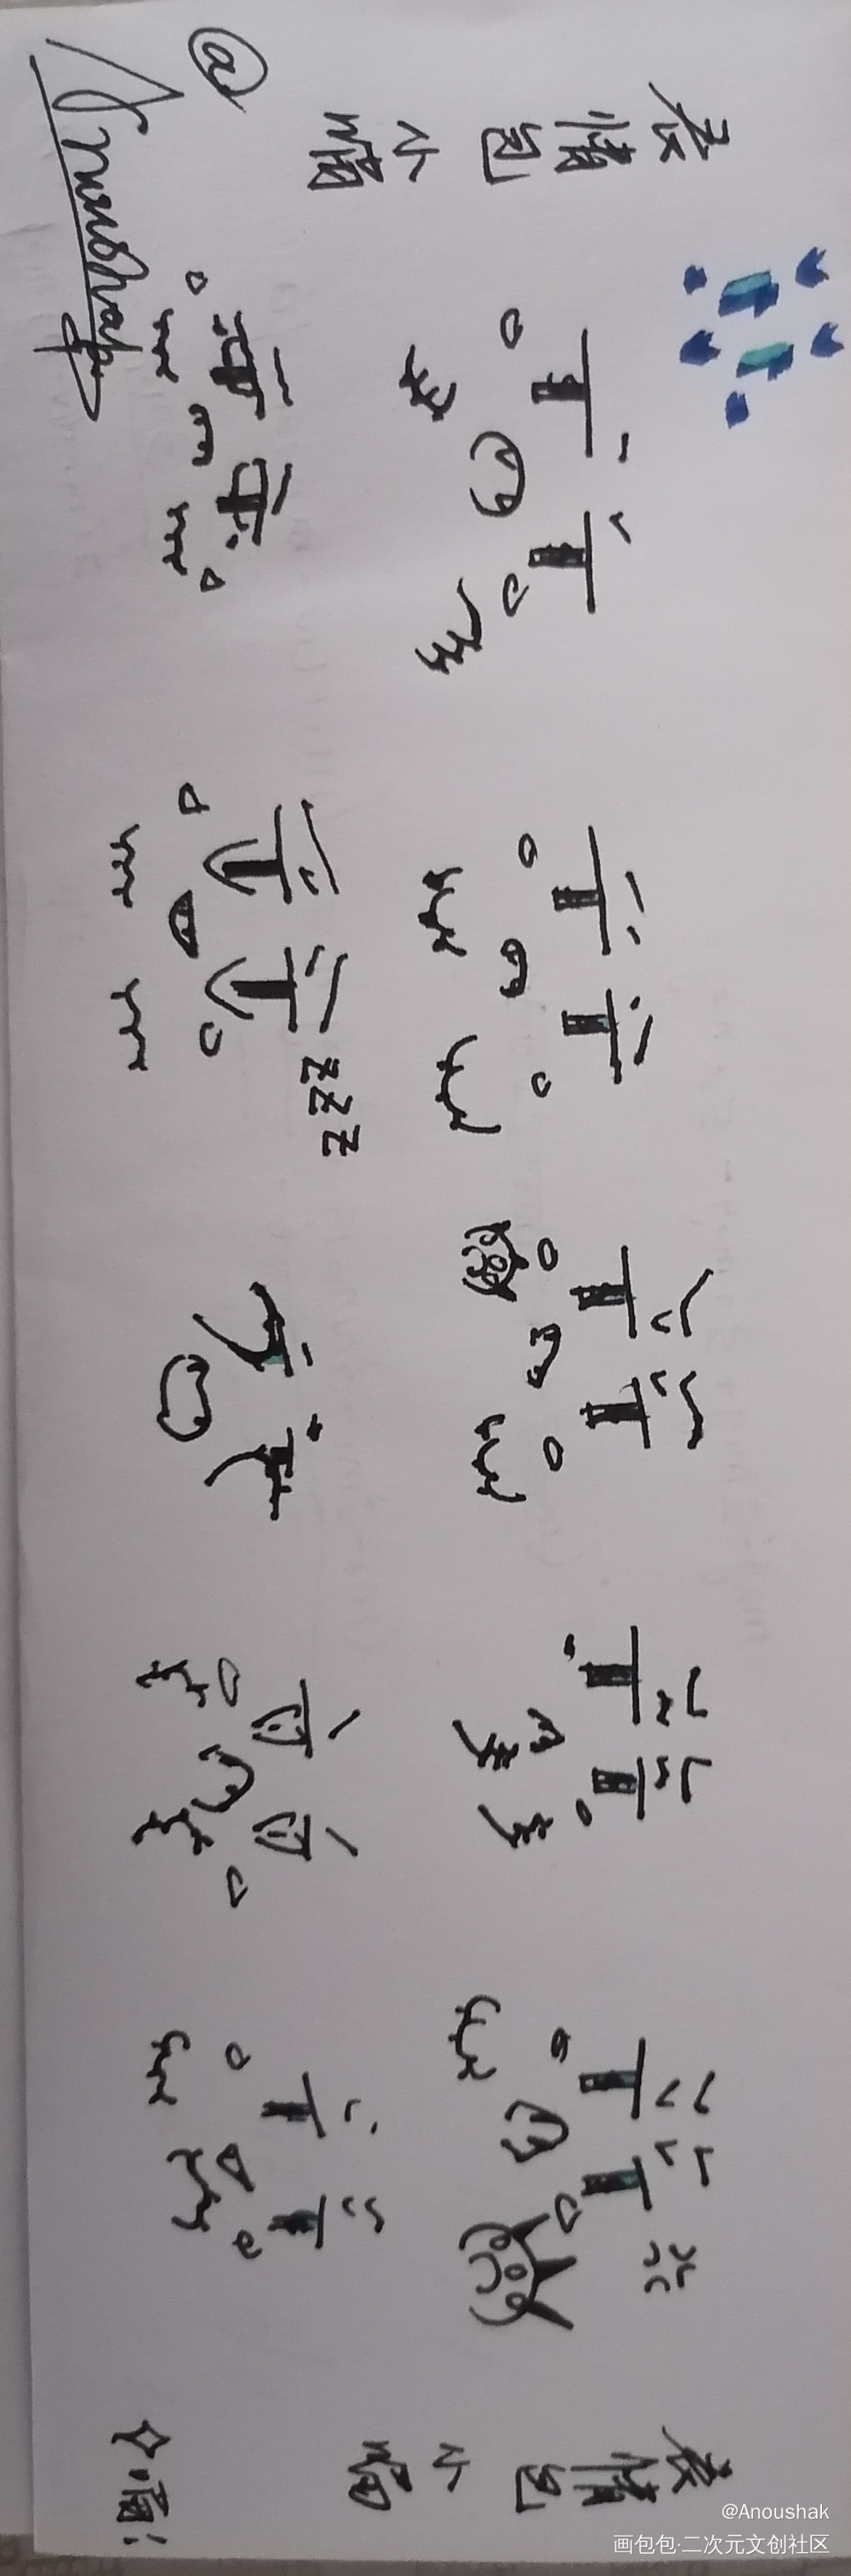 表情包小
ⓐ Anoushak
zzz
表情包小
@Anoushak
画包包·二次元文创社区